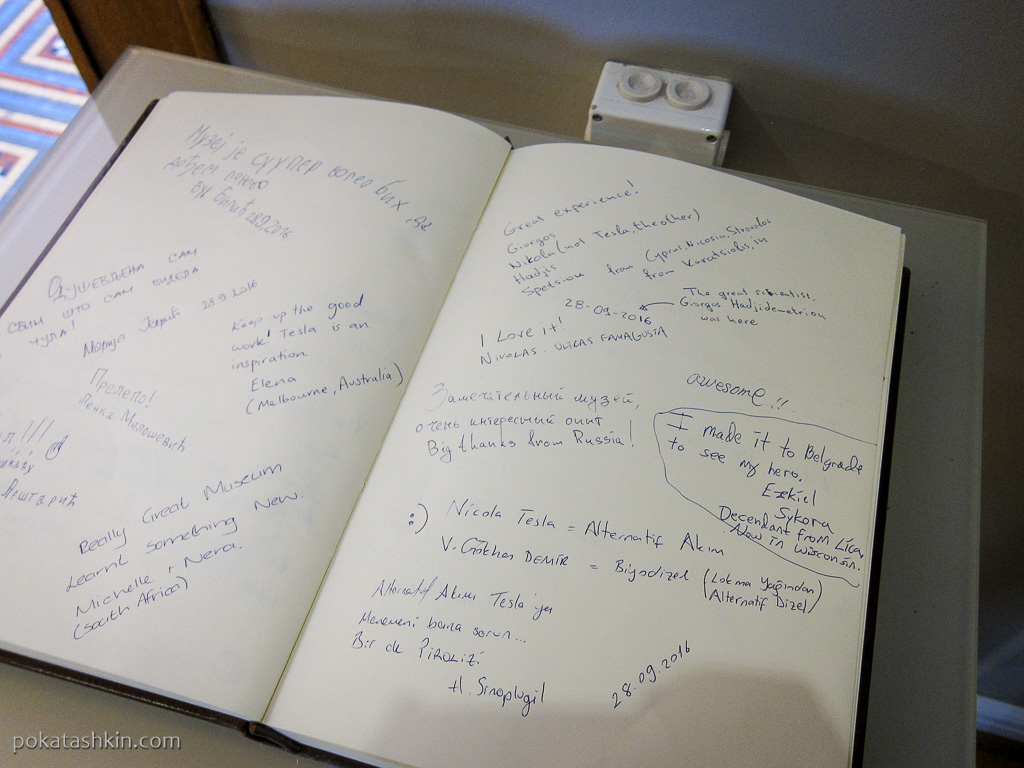 Музеј је суупер волео бих да
дођем поново
28.9.2016
Одушевљена сам
свим што сам видела
чула!
28.9.2016
Keep up the good
work! Tesla is an
inspiration.
Elena
(Melbourne, Australia)
Прелепо!
Милошевић
Really Great Museum
Learnt something New.
Michelle + Nera.
(South Africa)
Great experience!
Giorgos
Nikola (not Tesla, the other)
Hadjis from Cyprus, Nicosia, Strovolos
from
28-09-2016
The great scientist.
Giorgos Hadjidemetriou
was here
I Love it!
NIKOLAS FAMAGUSTA
Замечательный музей,
очень интересный опыт
Big thanks from Russia!
awesome!!
I made it to Belgrade
to see my hero.
Ezekiel
Sykora
Decendant from Lica,
Now in Wisconsin.
:) Nicola Tesla = Alternatif Akım
V. Gökhan DEMİR = Biyodizel (Lokma Yağından)
(Alternatif Dizel)
Alternatif Akımı Tesla'ya
Menemeni bana sorun...
Bir de
28.09.2016
pokatashkin.com